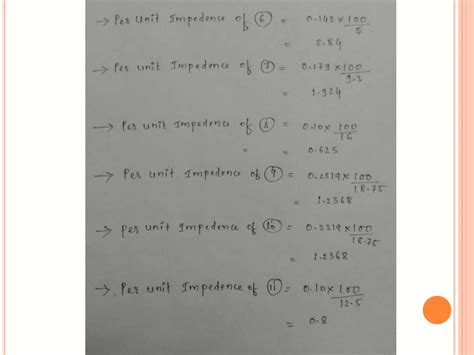 → Per Unit Impedence of ⑥ = 0.142 × 100
5
= 2.84
→ Per unit Impedence of ⑦ = 0.179 × 100
9.3
= 1.924
→ Per unit Impedence of ⑧ = 0.10× 100
16
" = 0.625
→ Per unit Impedence of ⑨ = 0.2319× 100
18.75
= 1.2368
→ per unit Impedence of ⑩ = 0.2319× 100
18.75
= 1.2368
→ Per unit Impedence of ⑪ = 0.10× 100
12.5
= 0.8